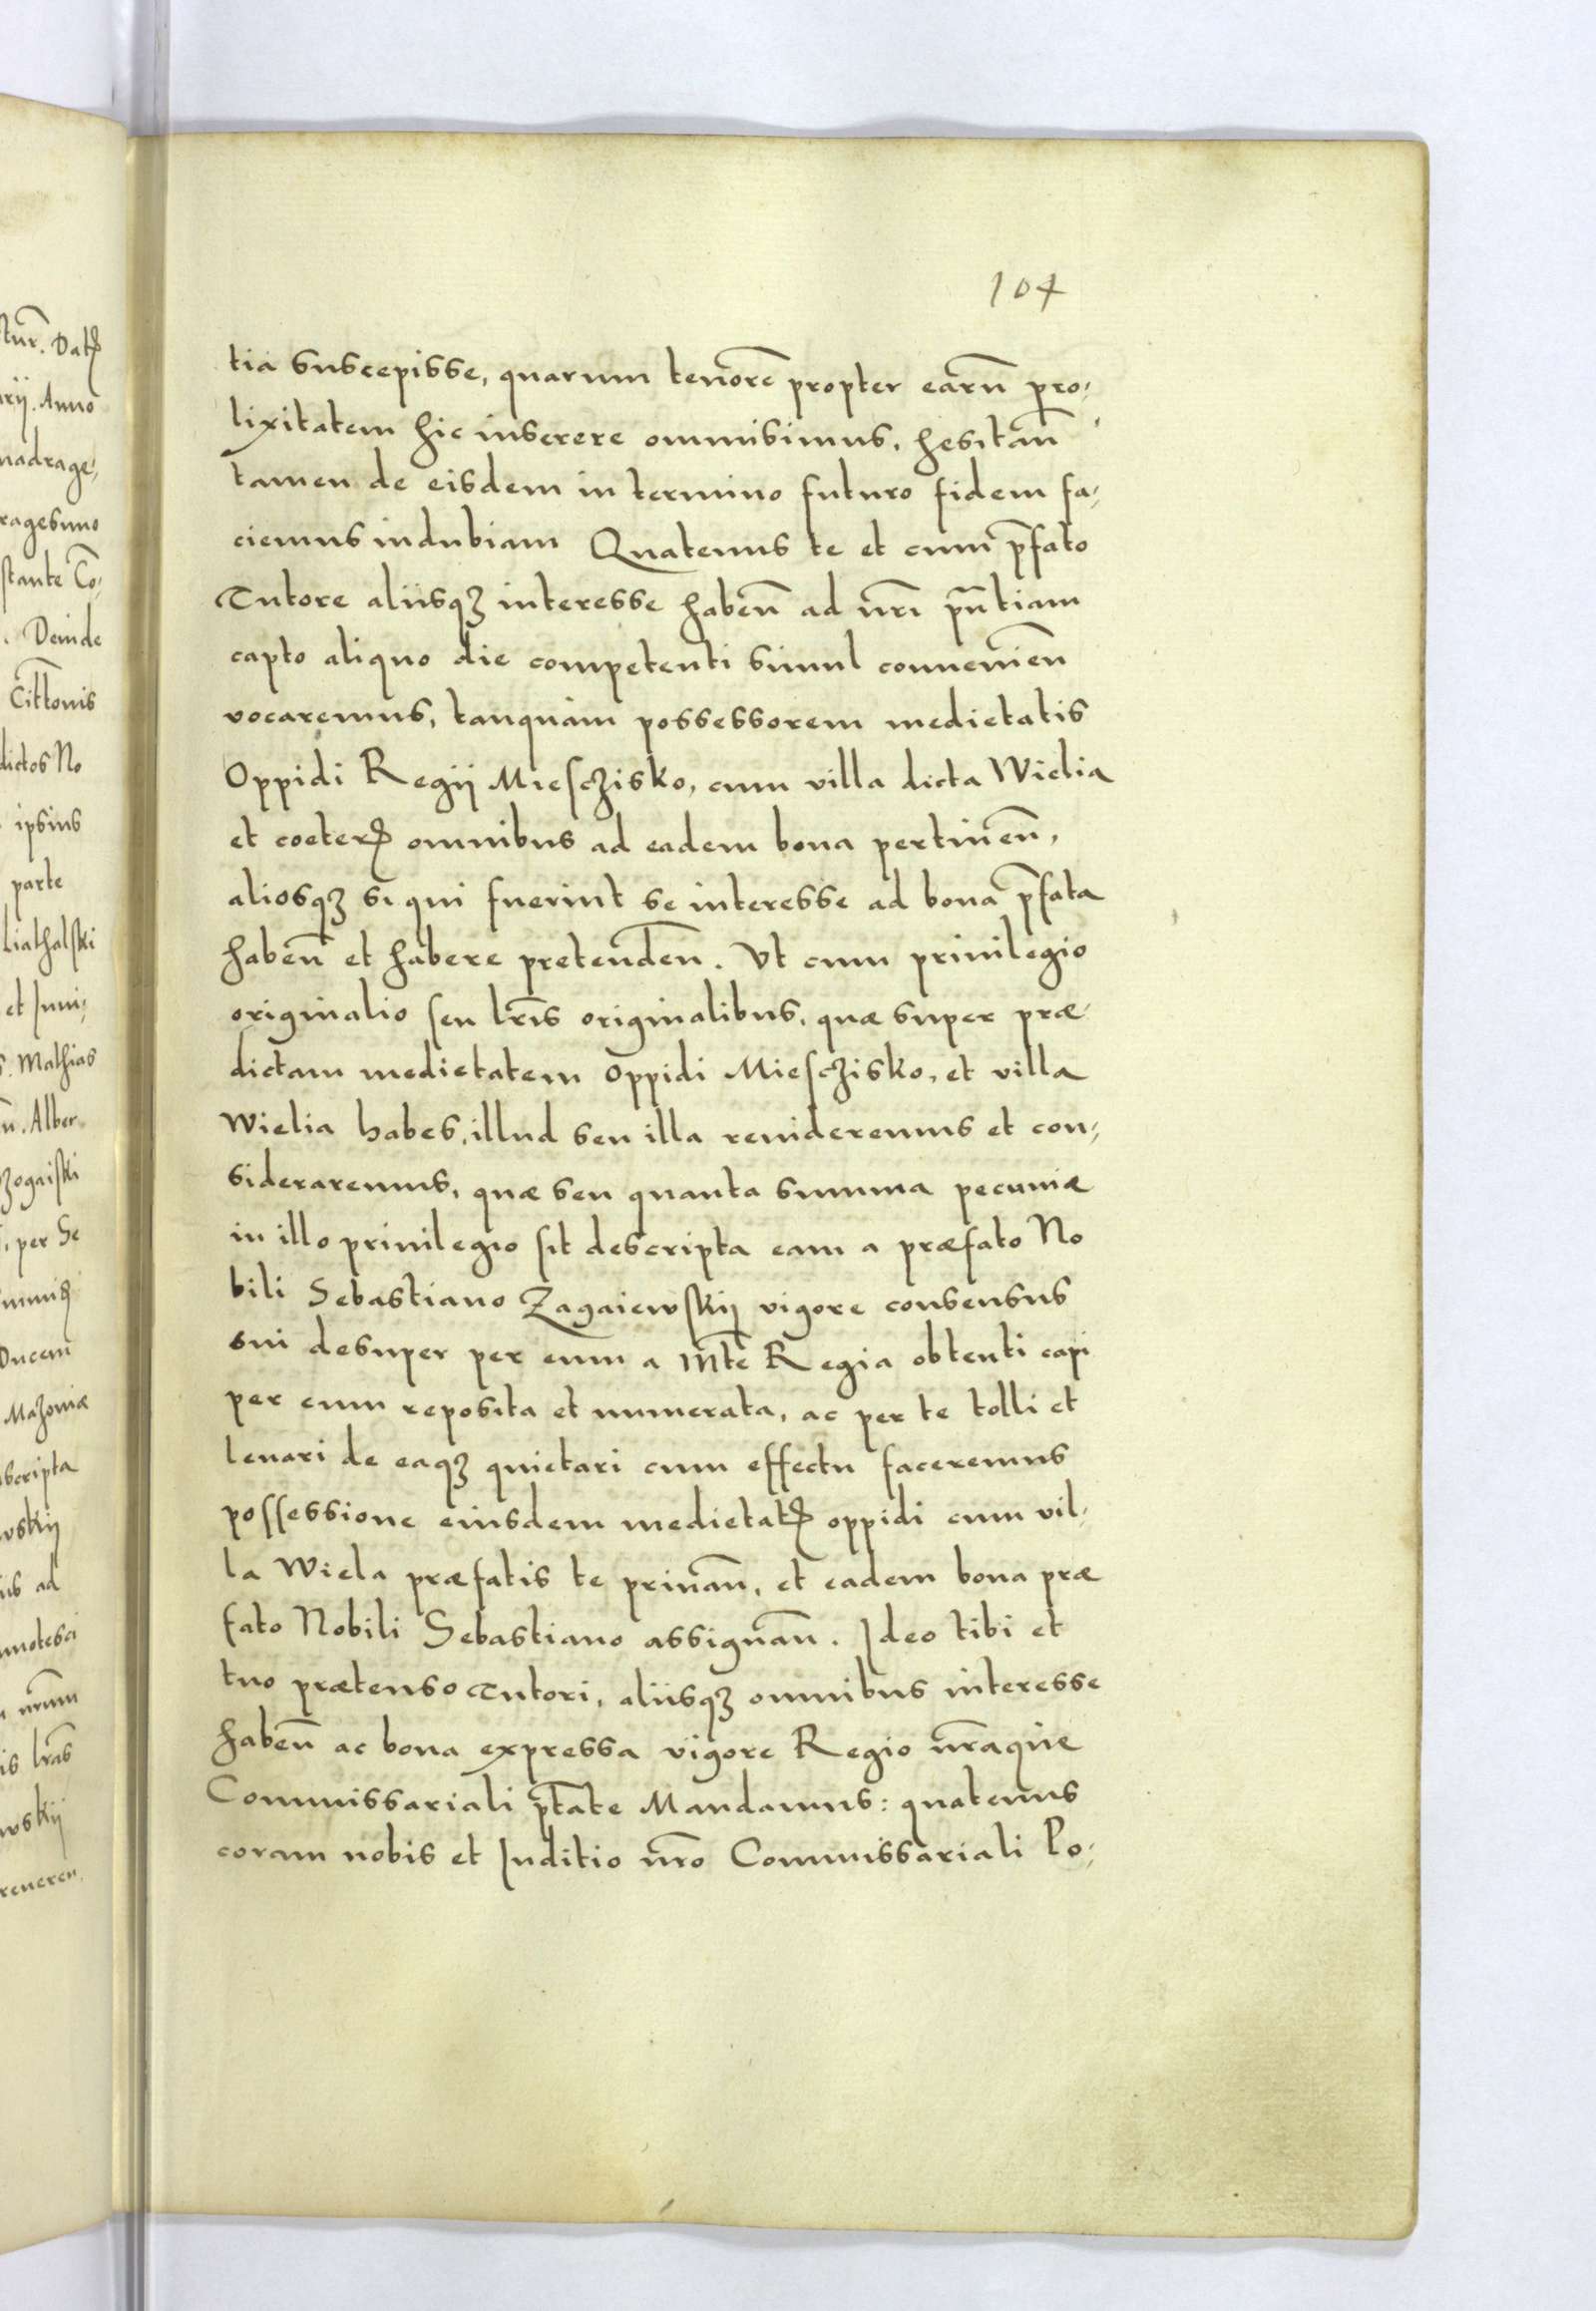 104
tia suscepisse, quarum tenorē propter earū pro,
lixitatem hic inserere ommisimus, hesitan̄
tamen de eisdem in termino futuro fidem fa,
ciemus indubiam Quatenus te et cum p̄fato
Tutore aliisqȝ interesse haben̄ ad nr̄i pn̄tiam
capto aliquo die competenti simul convenien̄
vocaremus, tanquam possessorem medietatis
Oppidi Regij Miesczisko, cum villa dicta Wielia
et coeterꝭ omnibus ad eadem bona pertinen̄,
aliosqȝ si qui fuerint se interesse ad bona p̄fata
haben̄ et habere pretenden̄. Vt cum privilegio
originalio seu lr̄is originalibus, quæ super præ-
dictam medietatem oppidi Miesczisko, et villa
Wielia habes, illud seu illa revideremus et con,
sideraremus, quæ seu quanta summa pecuniæ
in illo privilegio sit descripta eam a præfato No
bili Sebastiano Zagaiewskij vigore consensus
sui desuper per eum a Mt̄e Regia obtenti capi
per eum reposita et numerata, ac per te tolli et
levari de eaqȝ quietari cum effectu faceremus
possessione eiusdem medietatꝭ oppidi cum vil-
la Wiela præfatis te privan̄, et eadem bona præ
fato Nobili Sebastiano assignan̄. Ideo tibi et
tuo prætenso Tutori, aliisqȝ omnibus interesse
haben̄ ac bona expressa vigore Regio nr̄aque
Commissariali pt̄ate Mandamus: quatenus
coram nobis et Juditio nr̄o Commissariali Po,